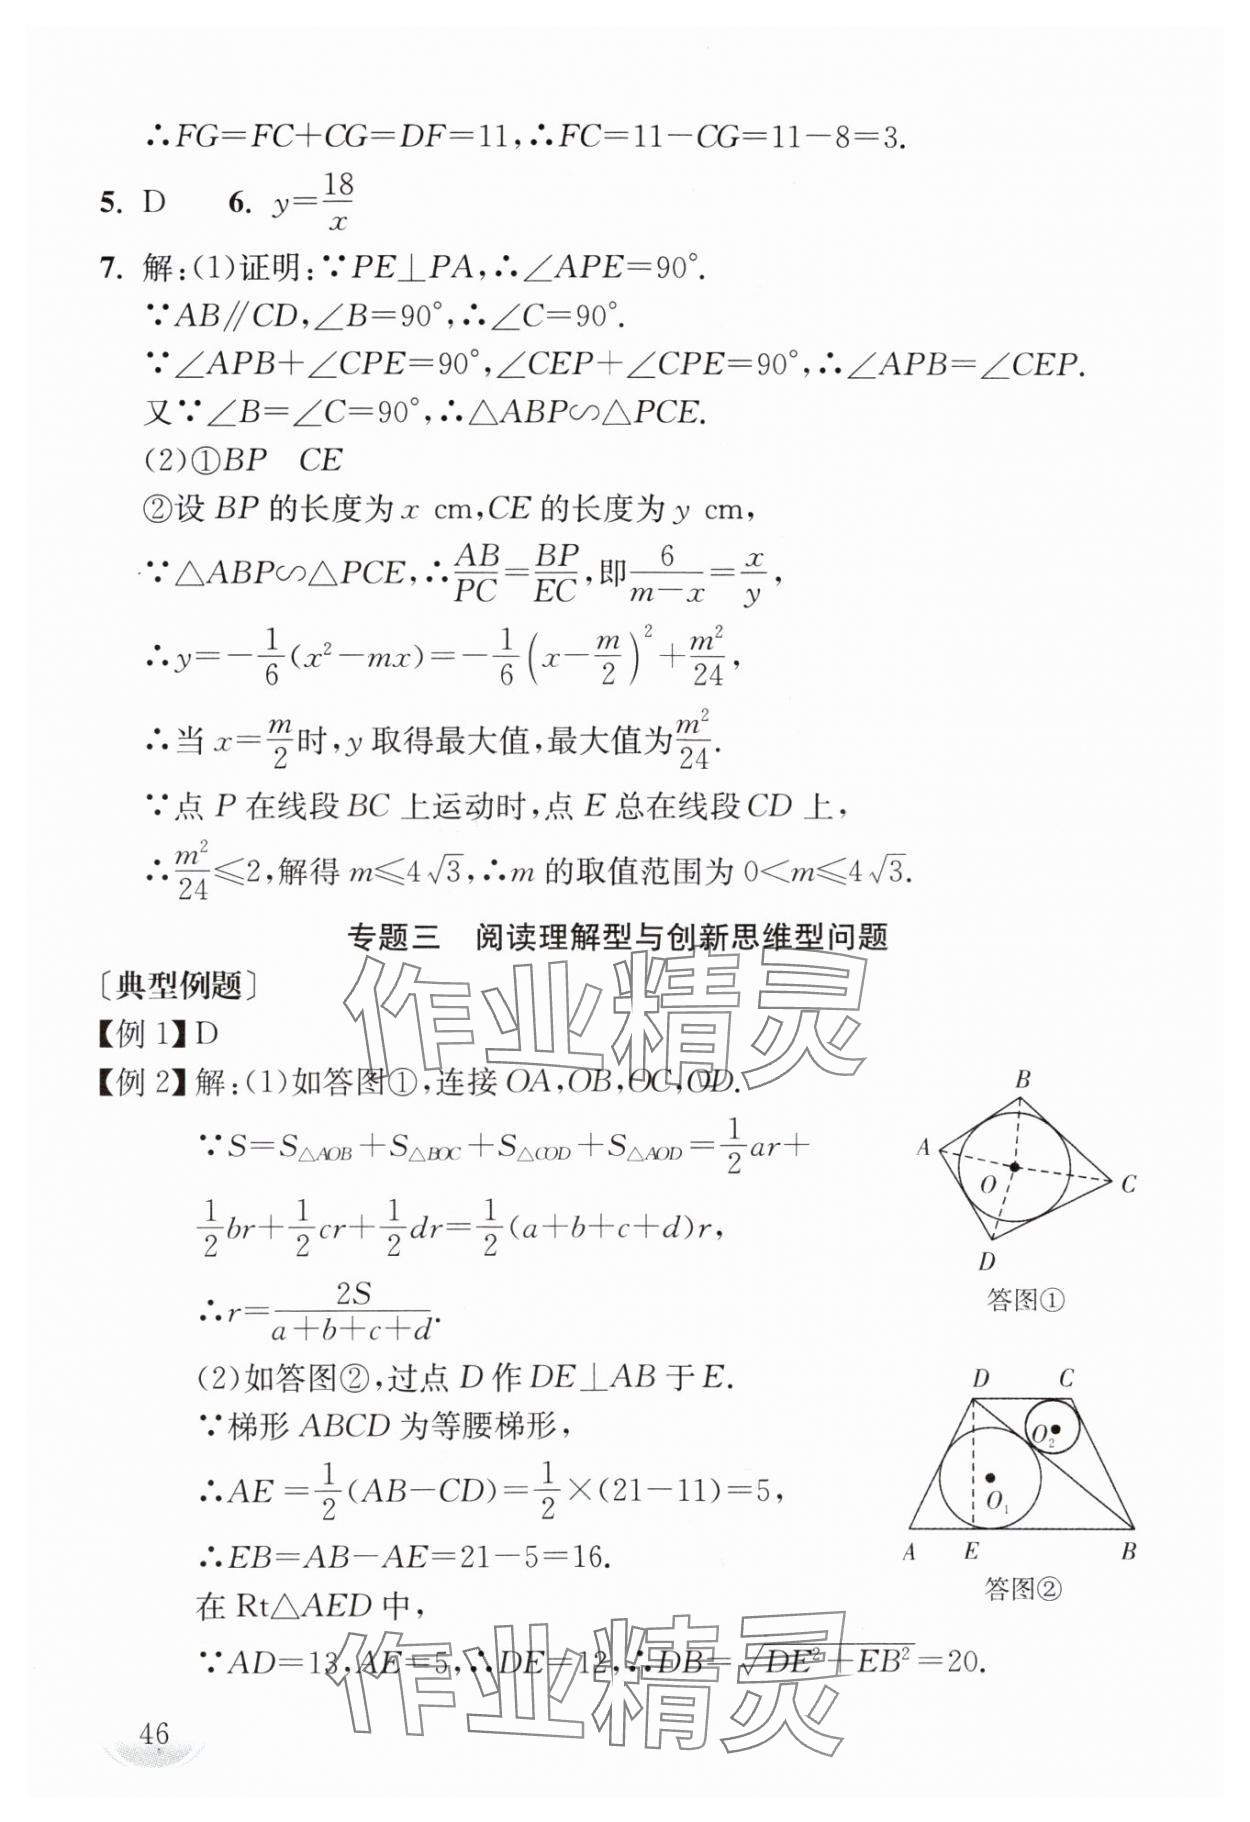 ∴FG=FC+CG=DF=11,∴FC=11-CG=11-8=3.
5. D  6. y=18/x
7. 解:(1)证明:∵PE⊥PA,∴∠APE=90°.
∵AB∥CD,∠B=90°,∴∠C=90°.
∵∠APB+∠CPE=90°,∠CEP+∠CPE=90°,∴∠APB=∠CEP.
又∵∠B=∠C=90°,∴△ABP∽△PCE.
(2)①BP  CE
②设 BP 的长度为 x cm,CE 的长度为 y cm,
∵△ABP∽△PCE,∴AB/PC=BP/EC,即6/(m-x)=x/y,
∴y=-1/6(x²-mx)=-1/6(x-m/2)²+m²/24,
∴当 x=m/2时,y 取得最大值,最大值为m²/24.
∵点 P 在线段 BC 上运动时,点 E 总在线段 CD 上,
∴m²/24≤2,解得 m≤4√3,∴m 的取值范围为 0<m≤4√3.
专题三  阅读理解型与创新思维型问题
[典型例题]
【例 1】D
【例 2】解:(1)如答图①,连接 OA,OB,OC,OD.
∵S=S△AOB+S△BOC+S△COD+S△AOD=1/2ar+
1/2br+1/2cr+1/2dr=1/2(a+b+c+d)r,
∴r=2S/(a+b+c+d).
B
A
O
C
D
答图①
(2)如答图②,过点 D 作 DE⊥AB 于 E.
∵梯形 ABCD 为等腰梯形,
∴AE=1/2(AB-CD)=1/2×(21-11)=5,
∴EB=AB-AE=21-5=16.
在 Rt△AED 中,
∵AD=13,AE=5,∴DE=12,∴DB=√(DE²+EB²)=20.
D C
O₂
O₁
A E B
答图②
46
作业精灵
作业精灵